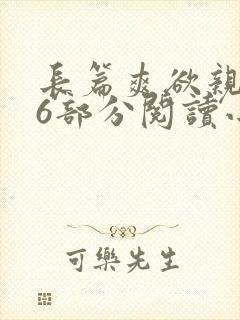 長篇爽欲親
6部分閱讀小
可樂先生